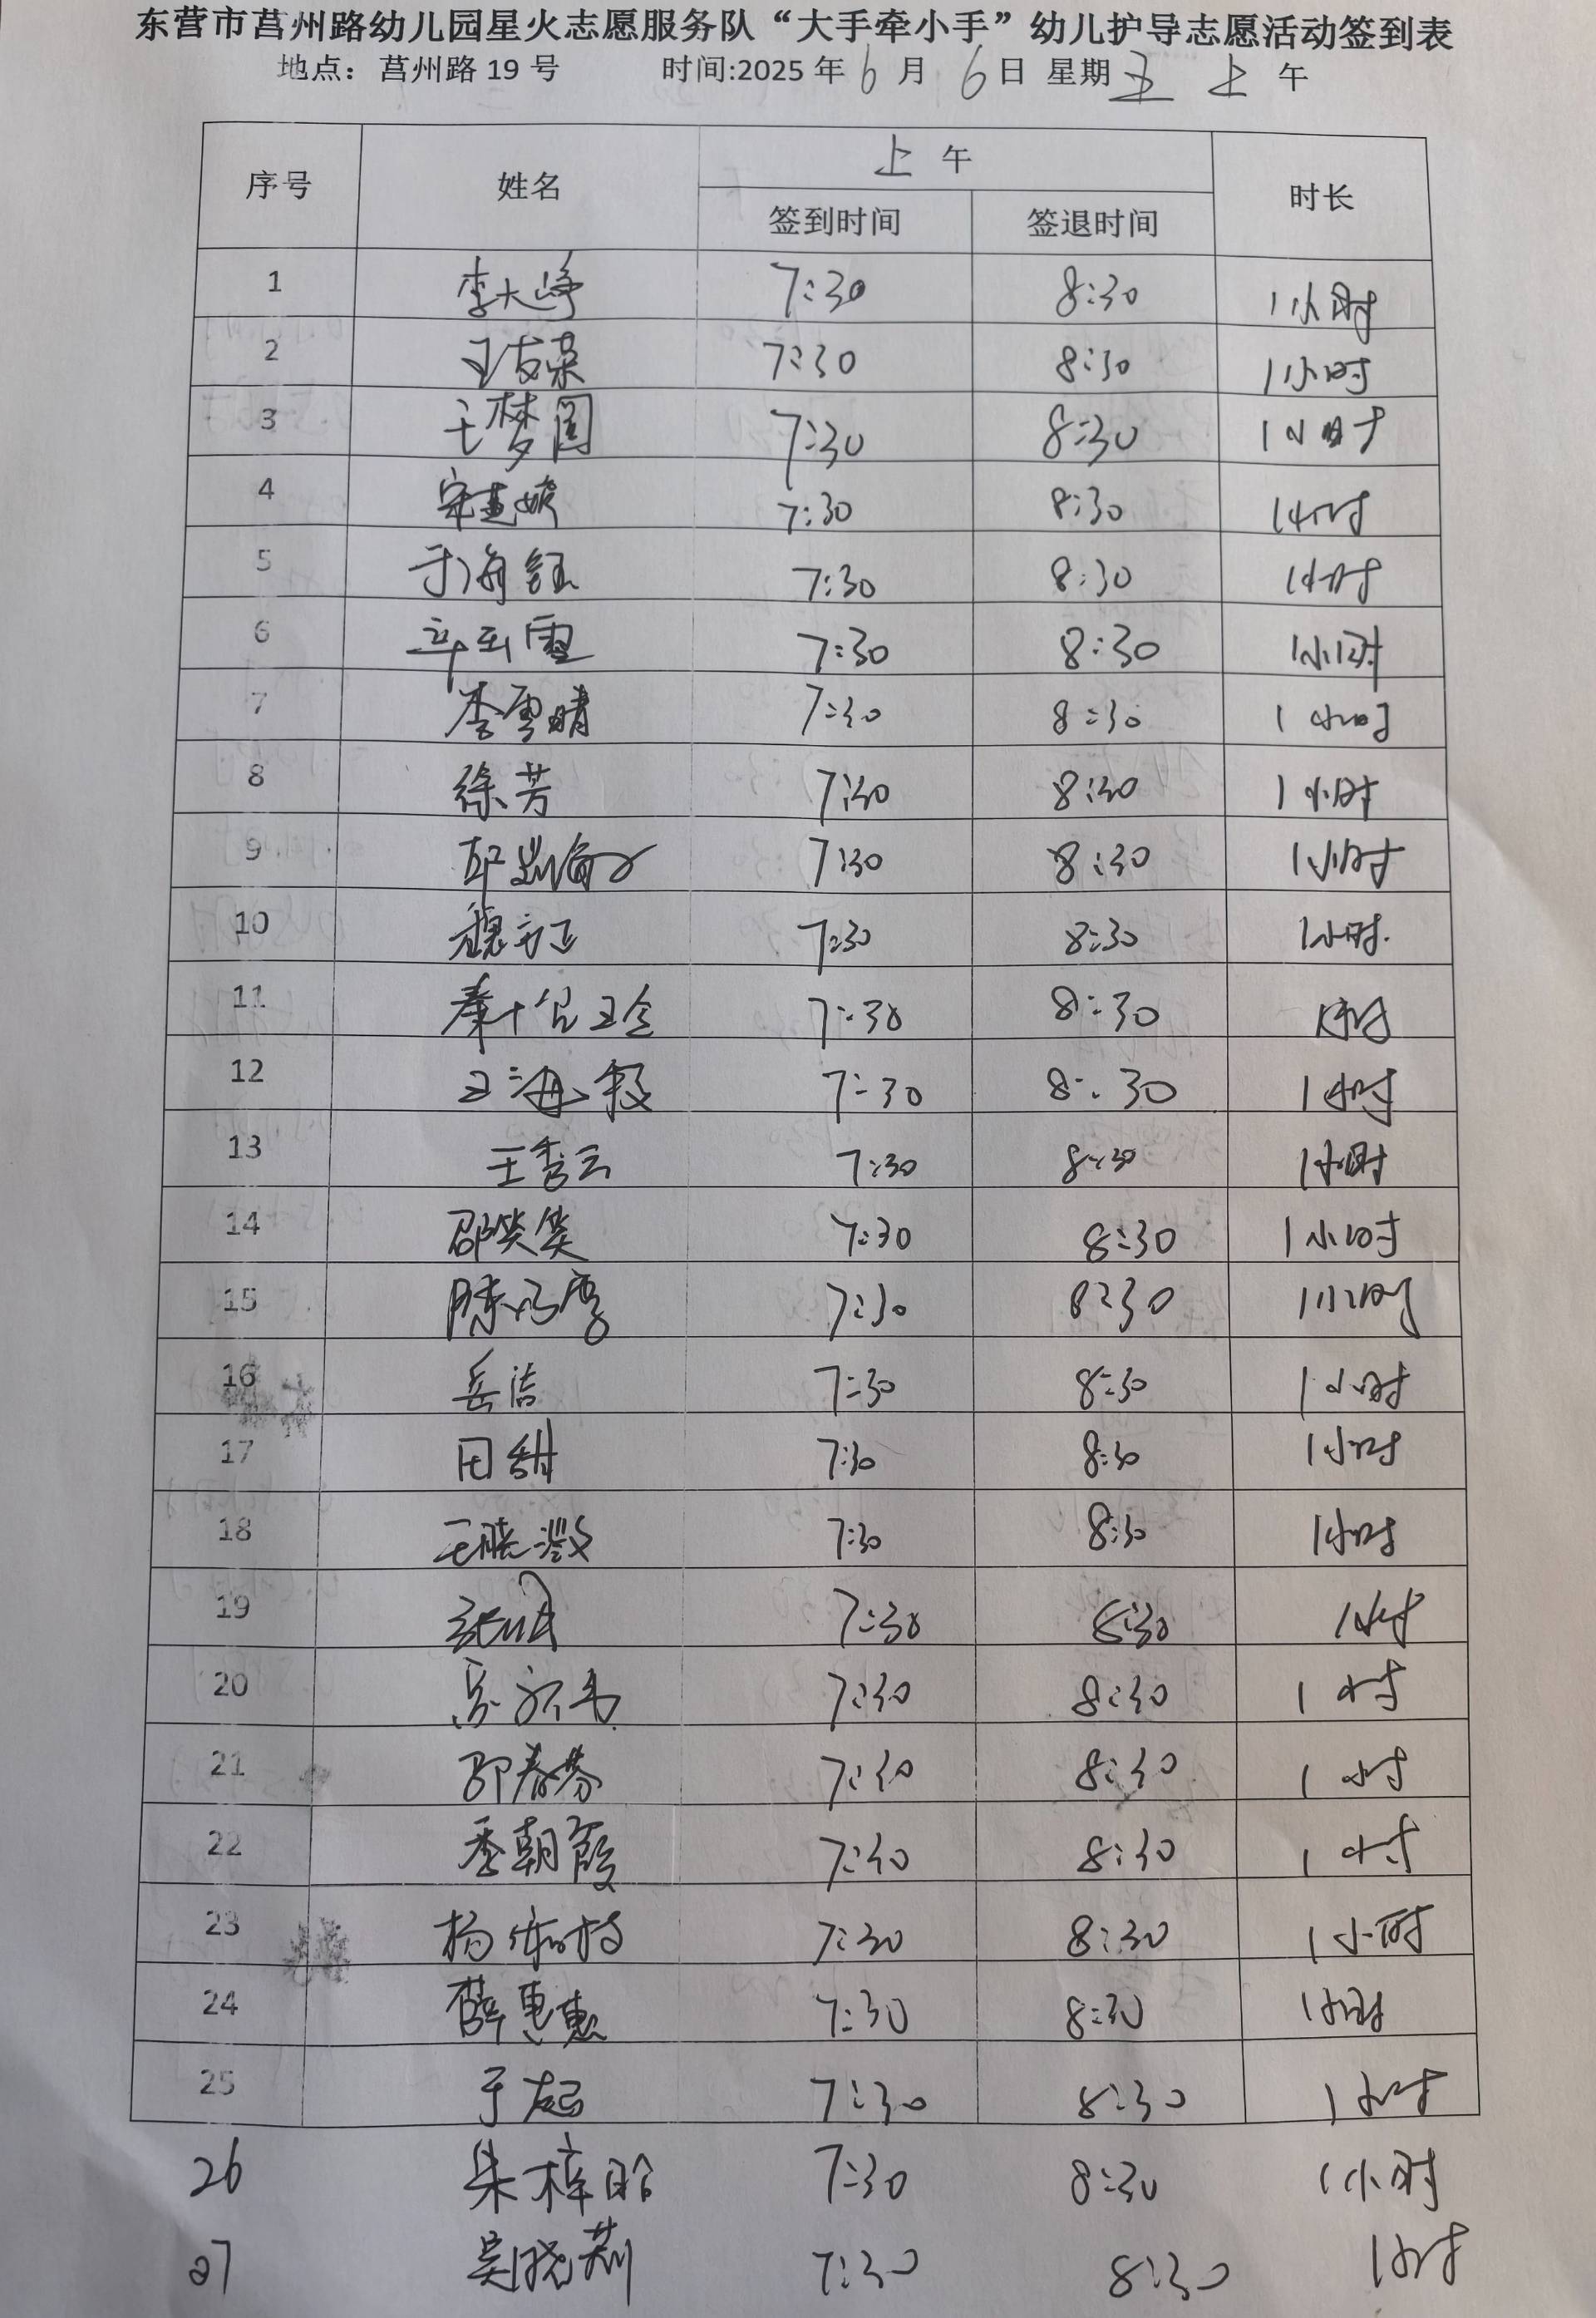 东营市莒州路幼儿园星火志愿服务队“大手牵小手”幼儿护导志愿活动签到表
地点：莒州路19号 时间:2025年6月6日 星期五 上午
序号 姓名 上午 时长
签到时间 签退时间
1 李大峥 7:30 8:30 1小时
2 王友荣 7:30 8:30 1小时
3 王梦圆 7:30 8:30 1小时
4 7:30 8:30 1小时
5 于海钰 7:30 8:30 1小时
6 7:30 8:30 1小时
7 李雪晴 7:30 8:30 1小时
8 徐芳 7:30 8:30 1小时
9 7:30 8:30 1小时
10 7:30 8:30 1小时
11 7:30 8:30 1小时
12 王海 7:30 8:30 1小时
13 王秀云 7:30 8:30 1小时
14 邵笑笑 7:30 8:30 1小时
15 陈 7:30 8:30 1小时
16 岳洁 7:30 8:30 1小时
17 田甜 7:30 8:30 1小时
18 王晓 7:30 8:30 1小时
19 7:30 8:30 1小时
20 7:30 8:30 1小时
21 邵春芬 7:30 8:30 1小时
22 季朝霞 7:30 8:30 1小时
23 杨 枝 7:30 8:30 1小时
24 薛惠惠 7:30 8:30 1小时
25 于起 7:30 8:30 1小时
26 朱梓晗 7:30 8:30 1小时
27 吴晓莉 7:30 8:30 1小时